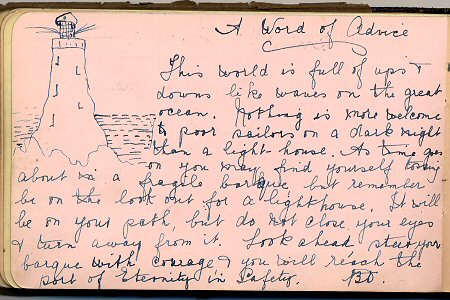 A Word of Advice
This world is full of ups &
downs like waves on the great
ocean. Nothing is more welcome
to poor sailors on a dark night
than a light-house. As time goes
on you may find yourself tossing
about in a fragile barque but remember
be on the look out for a lighthouse. It will
be on your path, but do not close your eyes
& turn away from it. Look ahead steer your
barque with courage & you will reach the
port of Eternity in Safety.